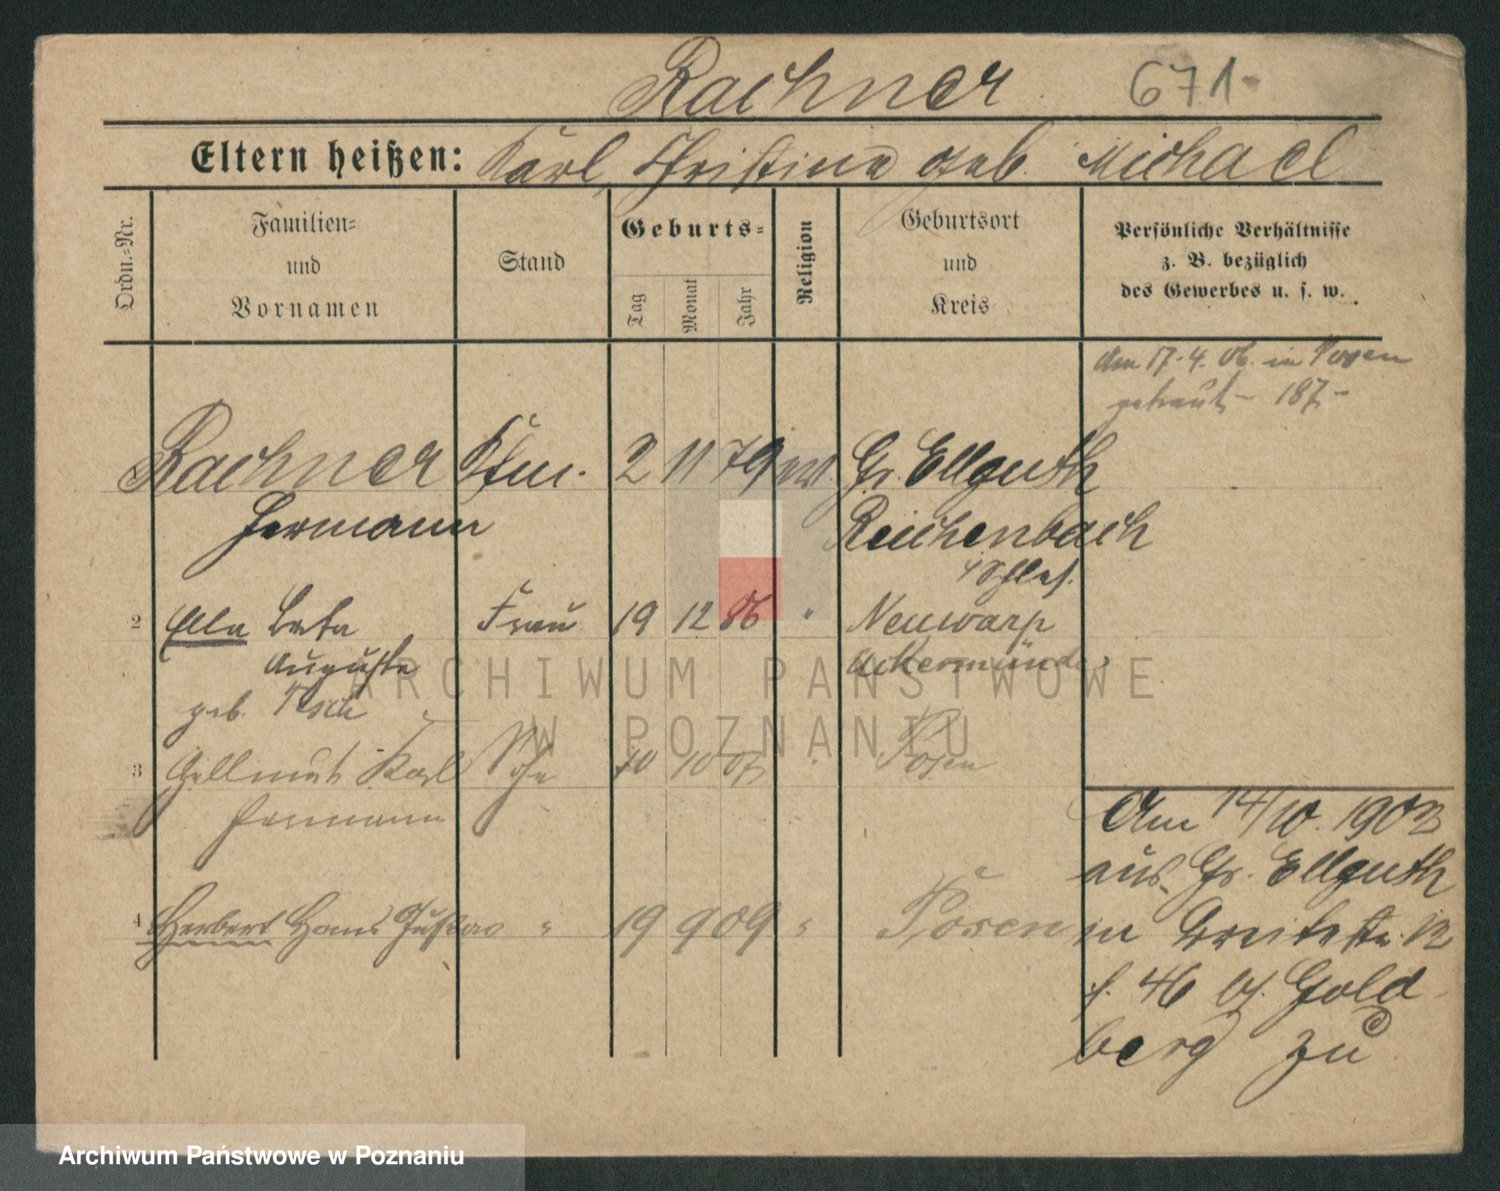 Rachner 671-
Eltern heißen: Karl, Christina geb. Michael
Ordn.-Nr.
Familien- und Vornamen
Stand
Geburts-
Tag Monat Jahr
Religion
Geburtsort und Kreis
Persönliche Verhältnisse
z. B. bezüglich
des Gewerbes u. s. w.
Am 17.4.06. in Posen
getraut - 187-
Rachner Kfm. 2 11 79 Gr. Ellguth
Hermann Reichenbach
Schles.
2 Ella Frau 19 12 86 " Neuwarp
Auguste Uckermünde
geb.
3 Hellmut Karl Sohn 10 10 07 Posen
Hermann
4 Herbert Hans Gustav " 19 9 09 " Posen
Am 14/10. 1903
aus Gr. Ellguth
in Breitestr. 12
f. 46 bf. Gold
berg zu
ARCHIWUM PAŃSTWOWE
W POZNANIU
Archiwum Państwowe w Poznaniu